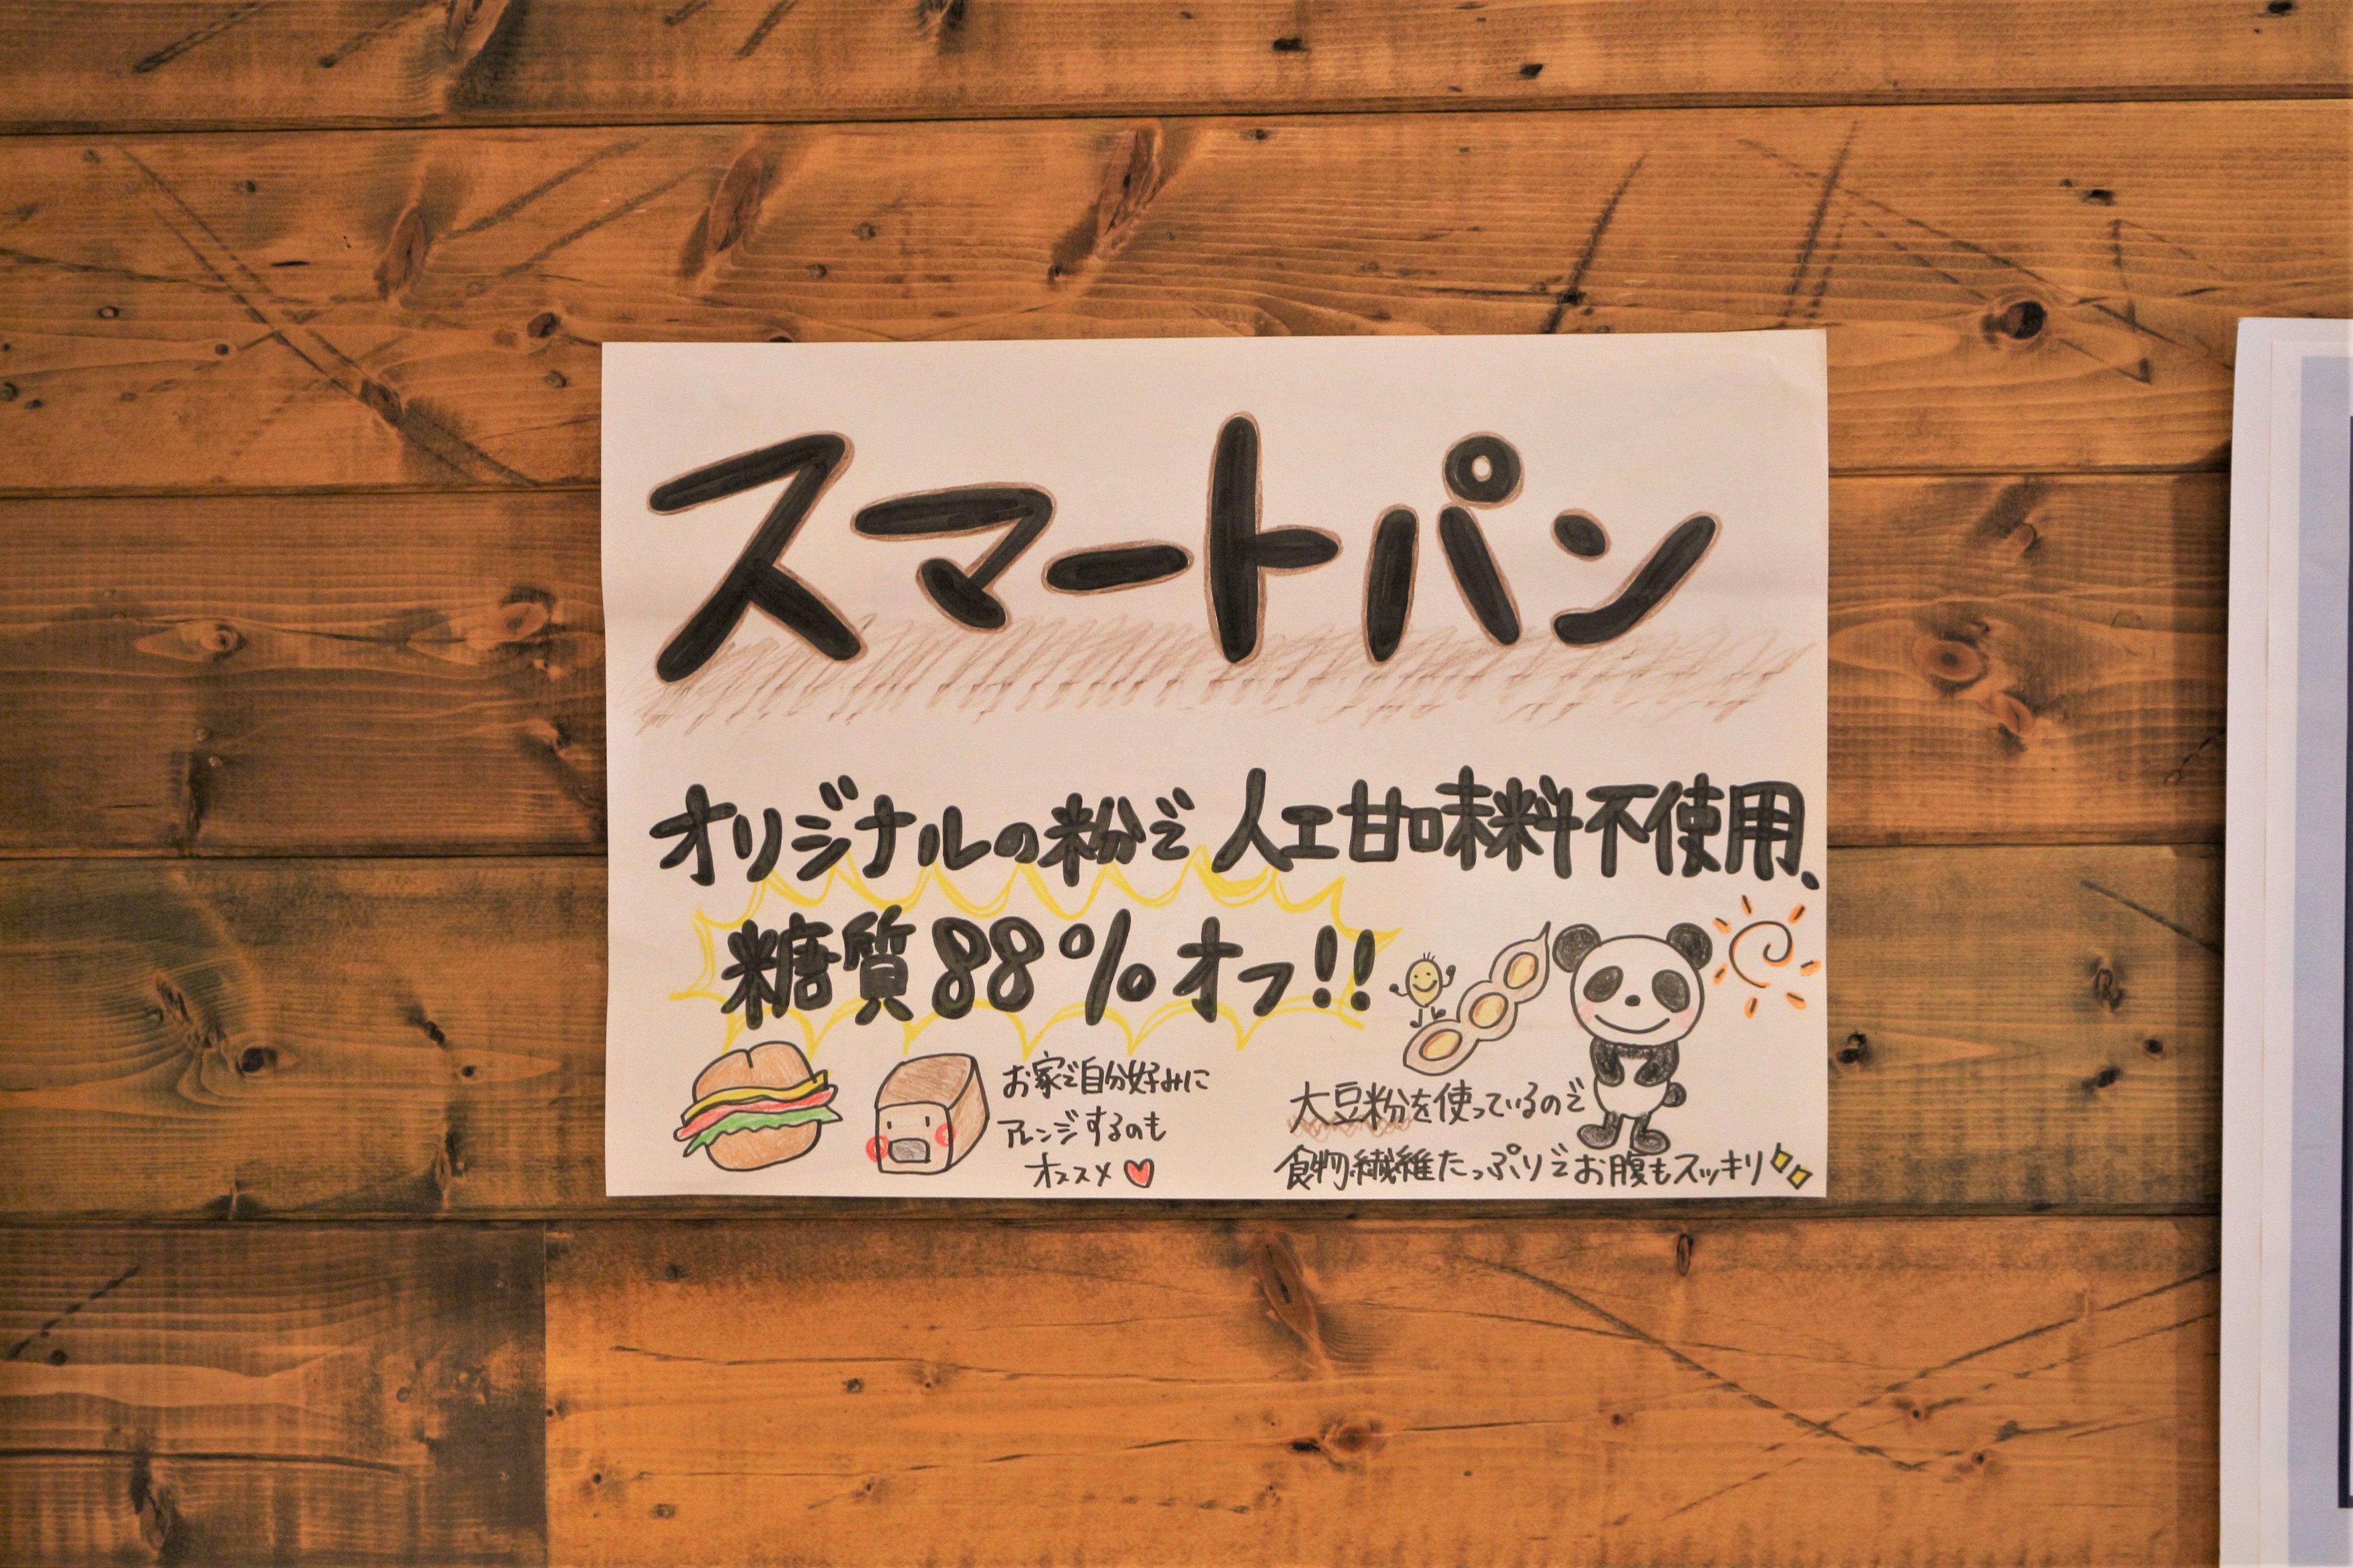 スマートパン
オリジナルの粉で 人工甘味料不使用、
糖質88%オフ!!
お家で自分好みに
アレンジするのも
オススメ
大豆粉を使っているので
食物繊維たっぷりでお腹もスッキリ